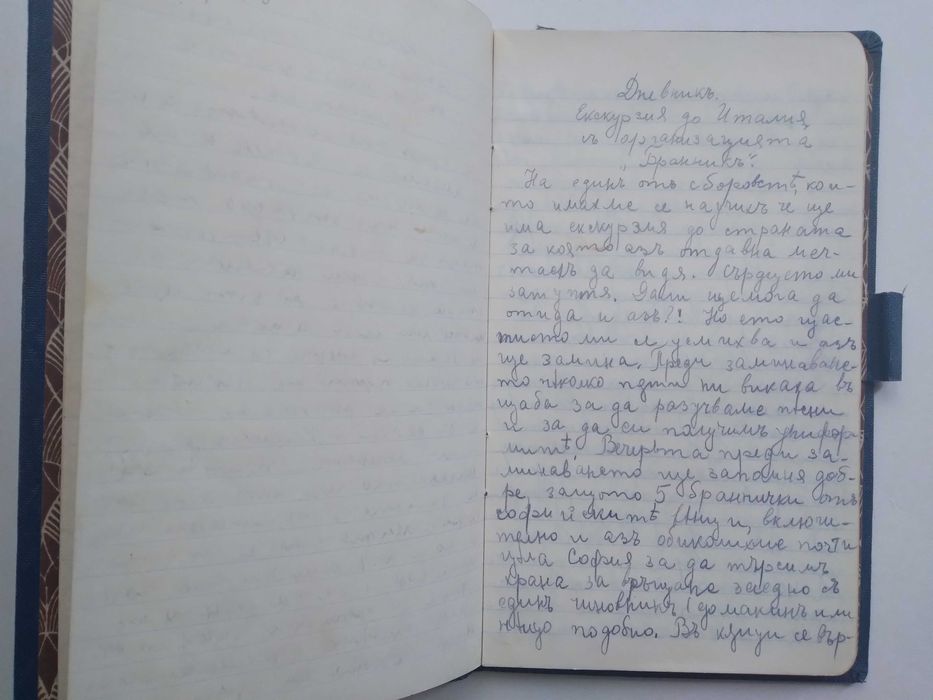 Дневникъ.
Екскурзия до Италия
съ организацията
"Бранникъ".
На единъ отъ сборовѣтѣ, кои-
то имахме се научихъ че ще
има екскурзия до страната
за която азъ отдавна меч-
таехъ да видя. Сърдцето ми
затуптя. Дали ще мога да
отида и азъ?! Но ето щас-
тието ми се усмихва и азъ
ще замина. Преди заминаване-
то няколко пѫти ни викаха въ
щаба за да разучваме пѣсни
и за да си получимъ унифор-
митѣ. Вечерьта преди за-
минаването ще запомня доб-
ре, защото 5 браннички отъ
софийскитѣ, включи-
телно и азъ обиколихме почти
цѣла София за да търсимъ
храна за връщане заедно съ
единъ чиновникъ (домакинъ или
нѣщо подобно. Въ кѫщи се вър-